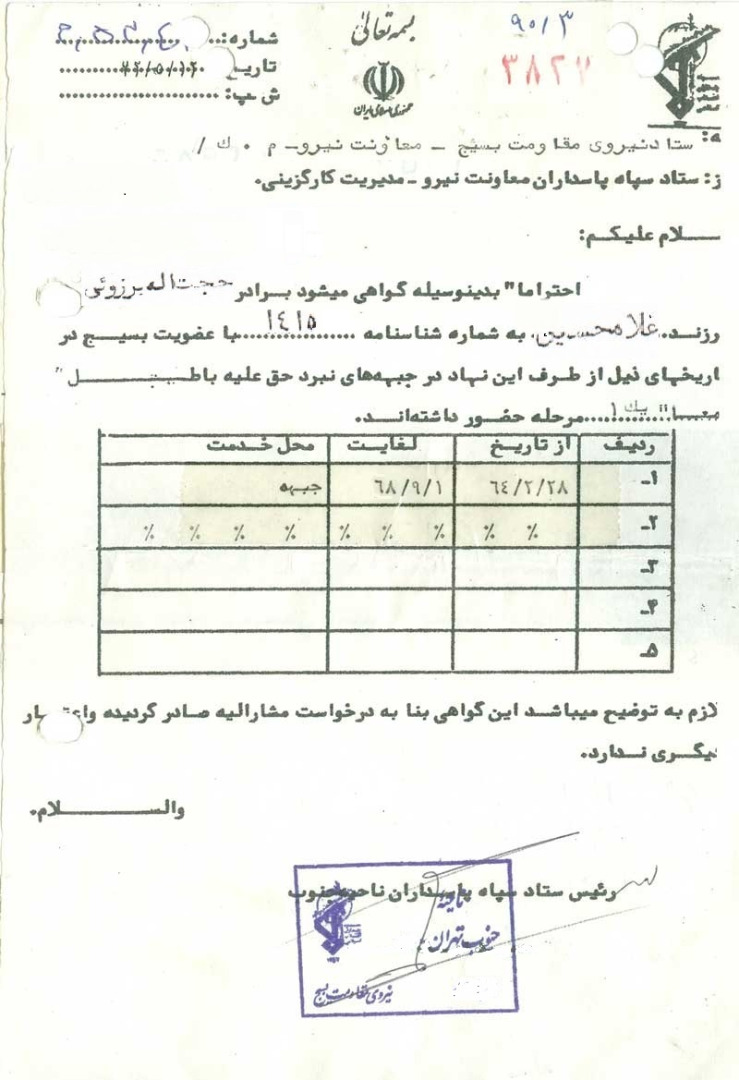 بسمه تعالی
۹۰/۳
۳۸۲۷
شماره:
تاریخ
ش پ:
جمهوری اسلامی ایران
ه: ستاد نیروی مقاومت بسیج ـ معاونت نیرو ـ م ۰ ك /
ز: ستاد سپاه پاسداران معاونت نیرو ـ مدیریت کارگزینی.
سلام علیکم:
احتراما" بدینوسیله گواهی میشود برادر حجت اله برزوئی
رزند.. غلامحسین. به شماره شناسنامه ۱٤۱٥ با عضویت بسیج در
اریخهای ذیل از طرف این نهاد در جبهه‌های نبرد حق علیه باطل
یك ۱ مرحله حضور داشته‌اند.
ردیف از تاریخ لغایت محل خدمت
۱ـ ٦٤/۲/۲۸ ٦۸/۹/۱ جبهه
۲ـ ٪ ٪ ٪ ٪ ٪ ٪ ٪ ٪ ٪
۳ـ
۴ـ
۵ـ
لازم به توضیح میباشد این گواهی بنا به درخواست مشارالیه صادر گردیده واعتبار
یگری ندارد.
والسلام.
رئیس ستاد سپاه پاسداران ناحیه جنوب
ناحیه
جنوب تهران
نیروی مقاومت بسیج